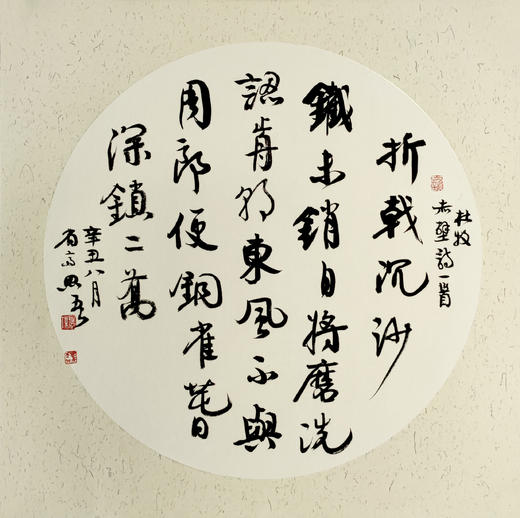 杜牧
赤壁詩一首
折戟沉沙
鐵未銷自將磨洗
認歬朝東風不與
周郎便銅雀萅
深鎖二喬
辛丑八月